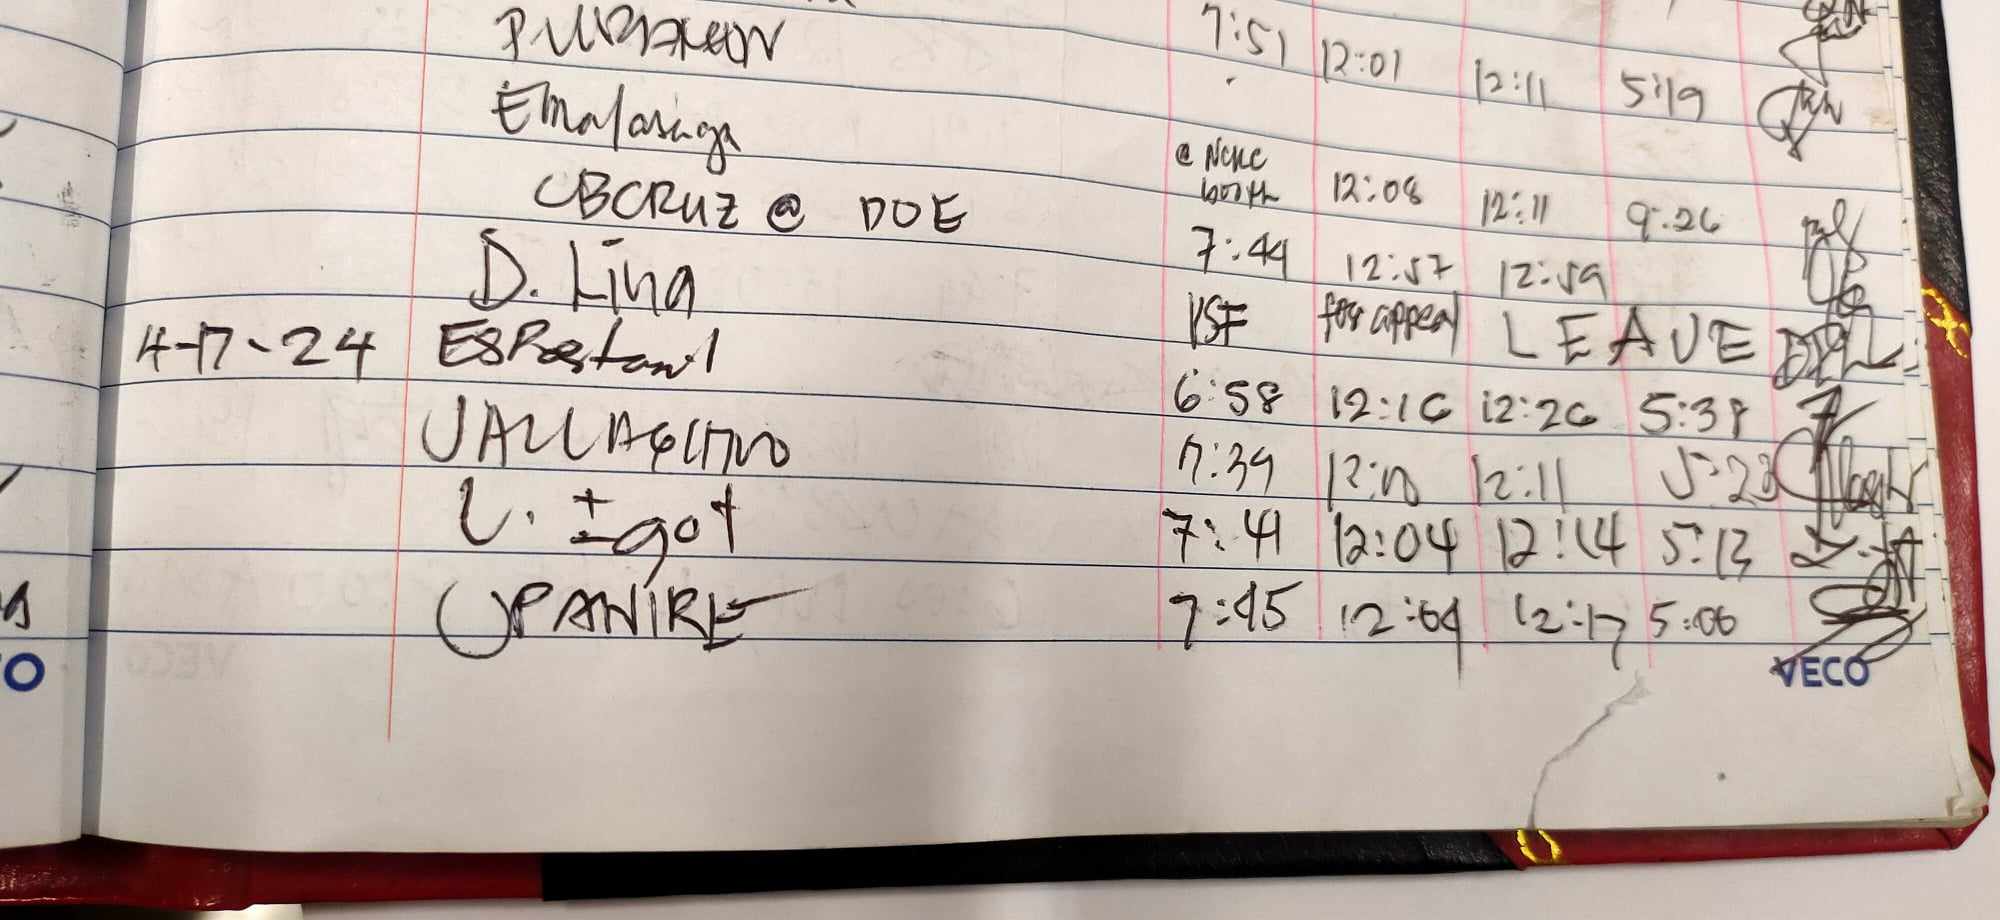 7:51 12:01 12:11 5:19
Emalasaga @ NCKC booth 12:08 12:11 9:26
CBCRUZ @ DOE 7:44 12:57 12:59
D. Lina VSF for appeal LEAVE
4-17-24 6:58 12:16 12:26 5:38
7:39 12:10 12:11 5:23
L. Igot 7:41 12:04 12:14 5:13
UPANIRE 7:45 12:04 12:17 5:06
VECO